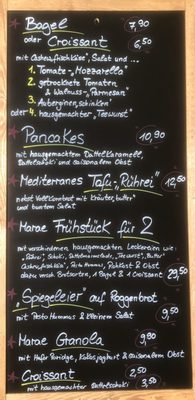 Bagel 7,90
oder Croissant 6,50
mit Cashew„frischkäse", Salat und ...
1. Tomate-„Mozzarella"
2. getrocknete Tomaten & Walnuss-„Parmesan"
3. Auberginen„schinken"
oder 4. hausgemachter „Teewurst"
Pancakes 10,90
mit hausgemachtem Dattelkaramell,
und saisonalem Obst
Mediterranes Tofu-„Rührei" 12,50
nebst Vollkornbrot mit Kräuter„butter"
und buntem Salat
Marae Frühstück für 2
mit verschiedenen hausgemachten Leckereien wie:
„Rührei", Schoki, Dattelmarmelade, „Teewurst", „Butter"
Cashew„frischkäse", Pesto Hummus, Rohkost & Obst
dazu versch. Brotsorten, 1 Bagel & 1 Croissant 29,50
„Spiegeleier" auf Roggenbrot
mit Pesto Hummus & kleinem Salat 9,50
Marae Granola 9,90
mit Hafer Porridge, Kokosjoghurt & saisonalem Obst
Croissant 2,50
mit hausgemachter Dattelschoki 3,50